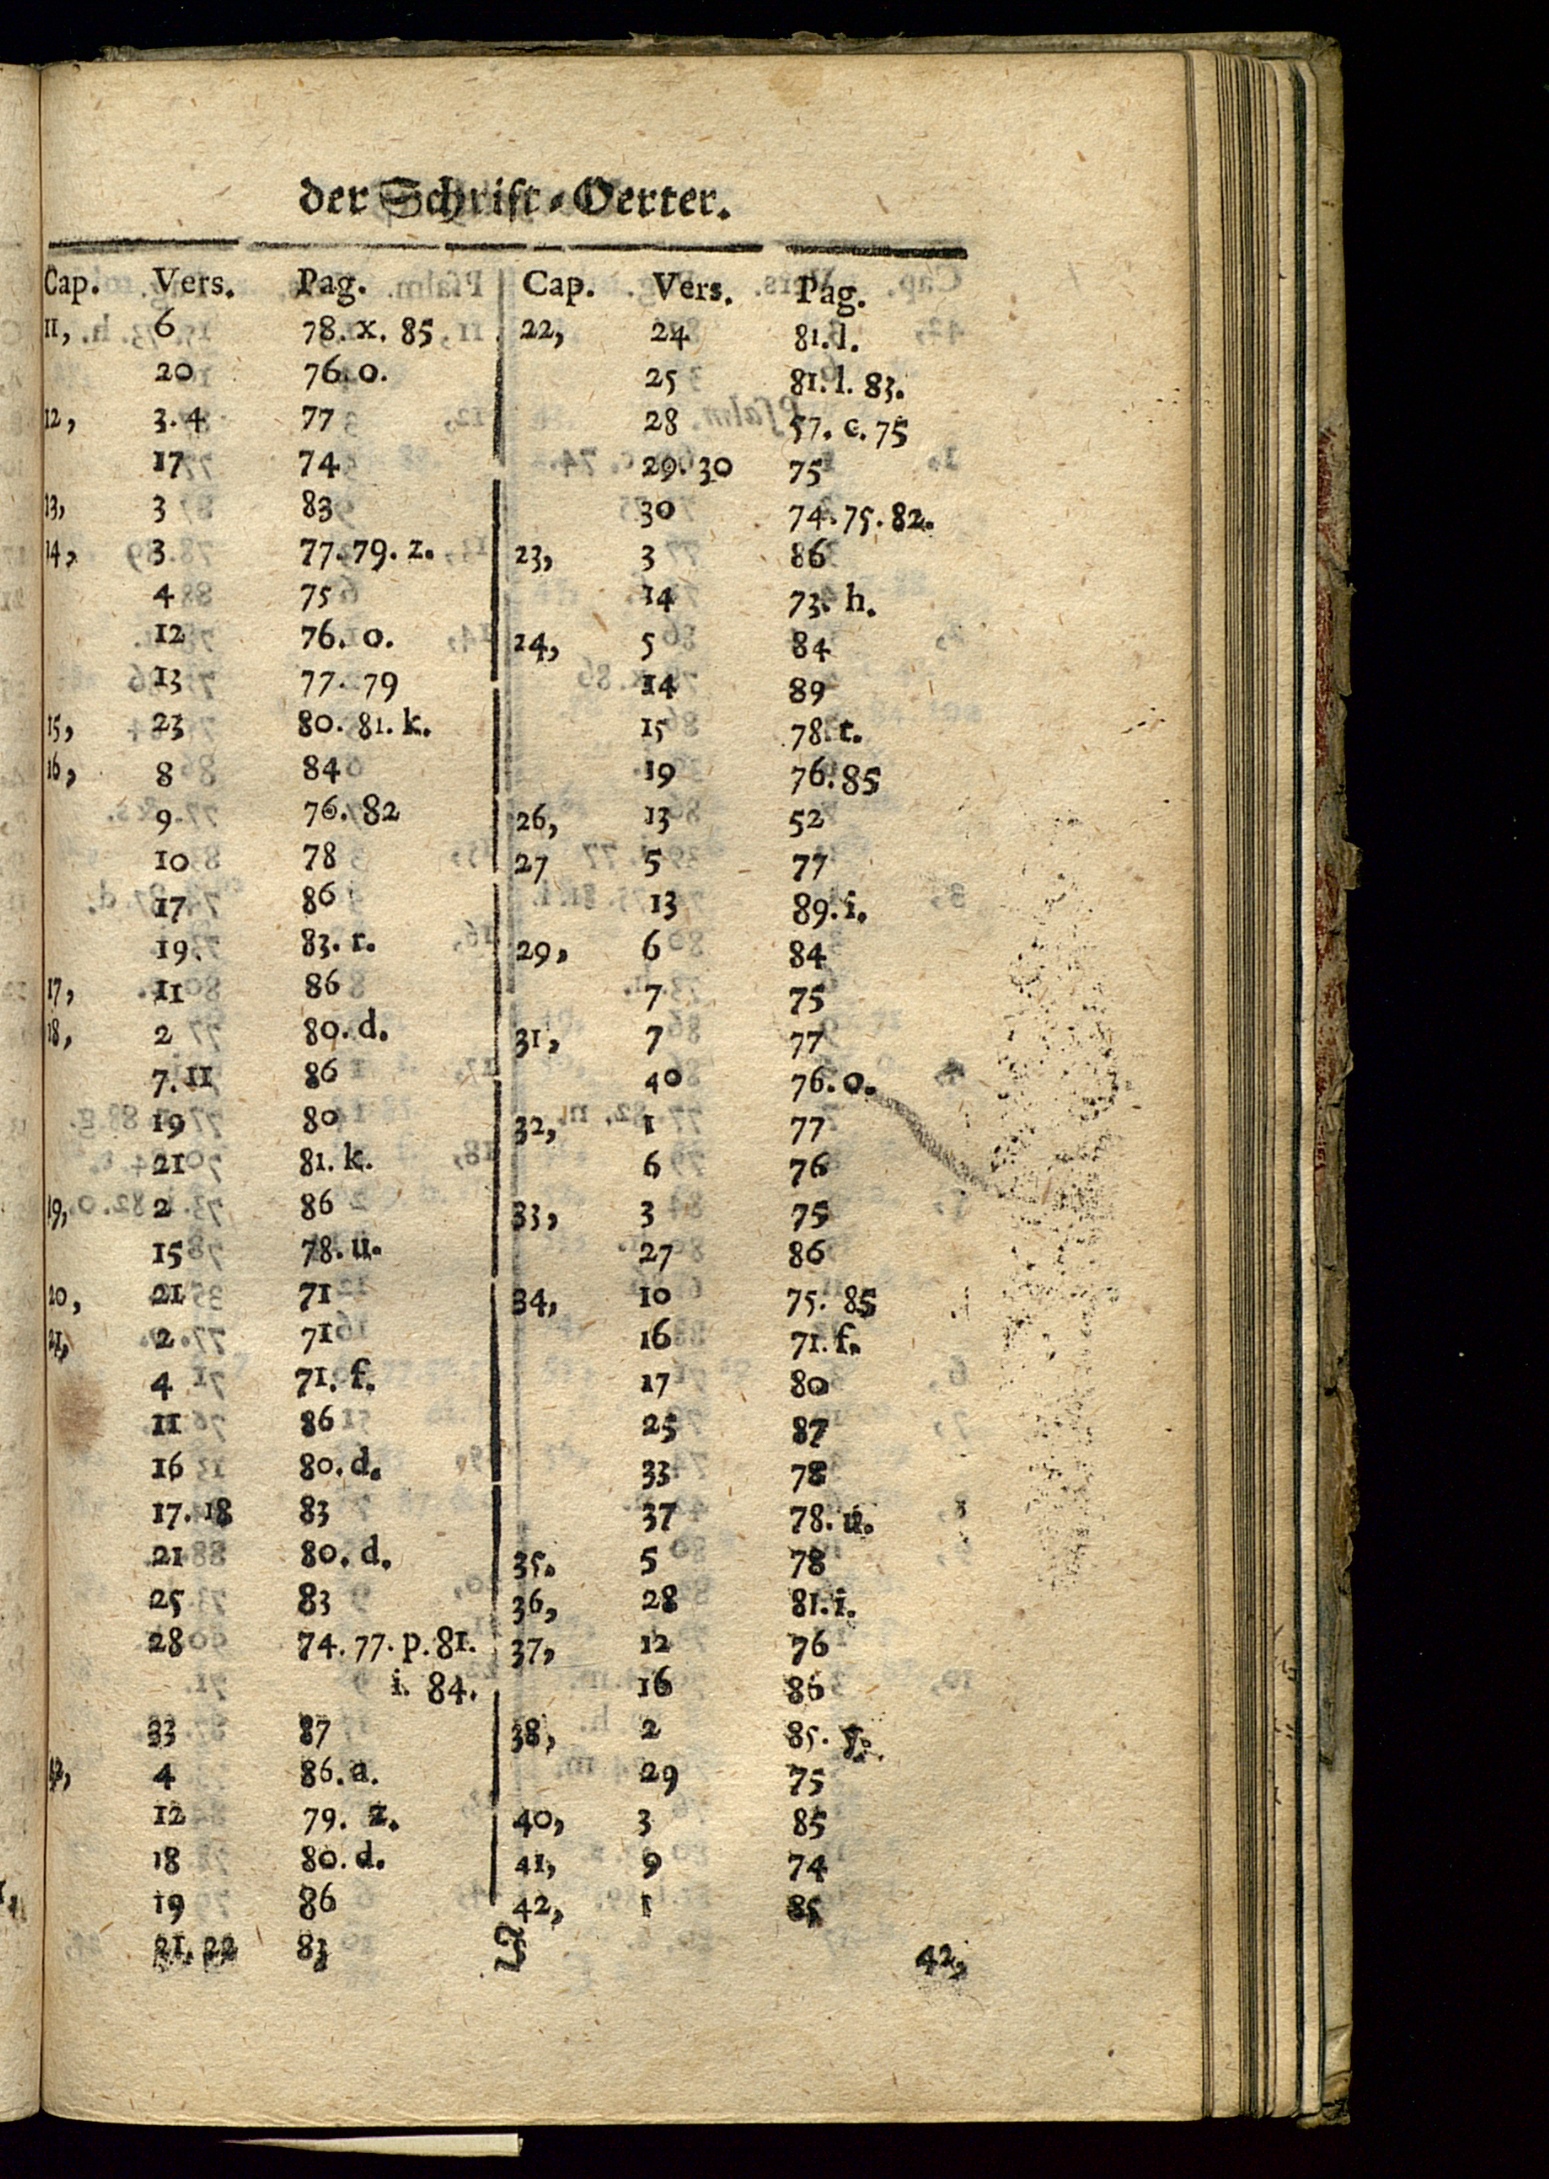 der Schrift-Oerter.
Cap. Vers. Pag.
11, 6 78. x. 85
20 76. o.
12, 3. 4 77
17 74
13, 3 83
14, 3 77. 79. z.
4 75
12 76. o.
13 77. 79
15, 23 80. 81. k.
16, 8 84
9 76. 82
10 78
17 86
19. 83. r.
17, 11 86
18, 2 80. d.
7. 11 86
19 80
21 81. k.
19, 2 86
15 78. u.
20, 21 71
21, 2 71
4 71. f.
11 86
16 80. d.
17. 18 83
21 80. d.
25 83
28 74. 77. p. 81.
i. 84.
33 87
4 86. a.
12 79. z.
18 80. d.
19 86
21. 22 83
Cap. Vers. Pag.
22, 24 81. l.
25 81. l. 83.
28 57. c. 75
29. 30 75
30 74. 75. 82.
23, 3 86
14 73. h.
24, 5 84
14 89
15 78. t.
19 76. 85
26, 13 52
27 5 77
13 89. i.
29, 6 84
7 75
31, 7 77
40 76. o.
32, 1 77
6 76
33, 3 75
27 86
34, 10 75. 85
16 71. f.
17 80
25 87
33 78
37 78. u.
35. 5 78
36, 28 81. i.
37, 12 76
16 86
38, 2 85. y.
29 75
40, 3 85
41, 9 74
42, 1 85
42,